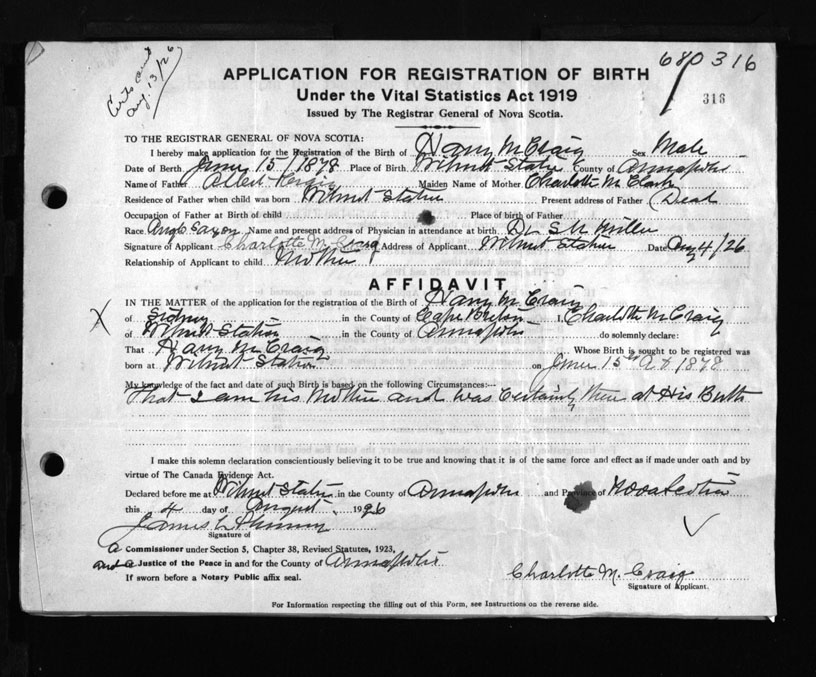 Certs sent
Aug. 13/26
680316
316
APPLICATION FOR REGISTRATION OF BIRTH
Under the Vital Statistics Act 1919
Issued by The Registrar General of Nova Scotia.
TO THE REGISTRAR GENERAL OF NOVA SCOTIA:
I hereby make application for the Registration of the Birth of Harry M Craig Sex Male
Date of Birth June 15/1878 Place of Birth Wilmot Station County of Annapolis
Name of Father Albert Maiden Name of Mother Charlotte M Clark
Residence of Father when child was born Wilmot Station Present address of Father (Dead
Occupation of Father at Birth of child Place of birth of Father
Race Anglo Saxon Name and present address of Physician in attendance at birth Dr S N Miller
Signature of Applicant Charlotte M Craig Address of Applicant Wilmot Station Date Aug 4/26
Relationship of Applicant to child Mother
AFFIDAVIT
IN THE MATTER of the application for the registration of the Birth of Harry M Craig
X of Sidney in the County of Cape Breton I, Charlotte M Craig
of Wilmot Station in the County of Annapolis do solemnly declare:
That Harry M Craig Whose Birth is sought to be registered was
born at Wilmot Station on June 15th 1878
My knowledge of the fact and date of such Birth is based on the following Circumstances:—
That I am his Mother and was Certainly there at His Birth
I make this solemn declaration conscientiously believing it to be true and knowing that it is of the same force and effect as if made under oath and by
virtue of The Canada Evidence Act.
Declared before me at Wilmot Station in the County of Annapolis and Province of Nova Scotia
this 4 day of August 1926
James
Signature of
a Commissioner under Section 5, Chapter 38, Revised Statutes, 1923,
and a Justice of the Peace in and for the County of Annapolis
If sworn before a Notary Public affix seal.
Charlotte M. Craig
Signature of Applicant.
For Information respecting the filling out of this Form, see Instructions on the reverse side.